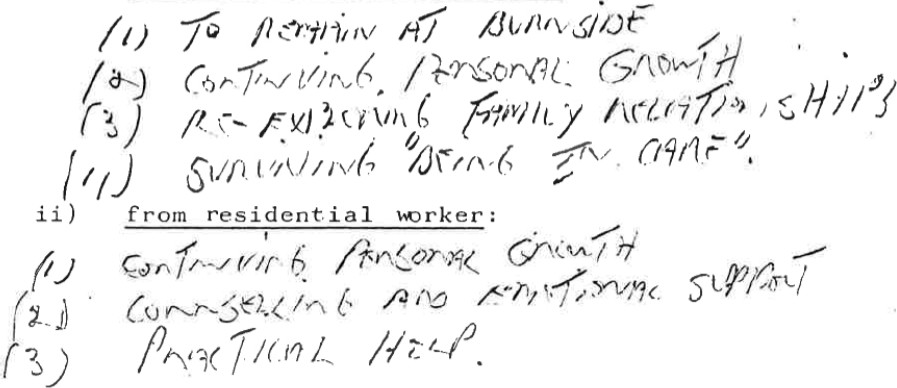 (1) TO REMAIN AT BURNSIDE
(2) CONTINUING PERSONAL GROWTH
(3) RE-EXPLORING FAMILY RELATIONSHIPS
(4) SURVIVING "BEING IN CARE".
ii) from residential worker:
(1) CONTINUING PERSONAL GROWTH
(2) COUNSELLING AND EMOTIONAL SUPPORT
(3) PRACTICAL HELP.